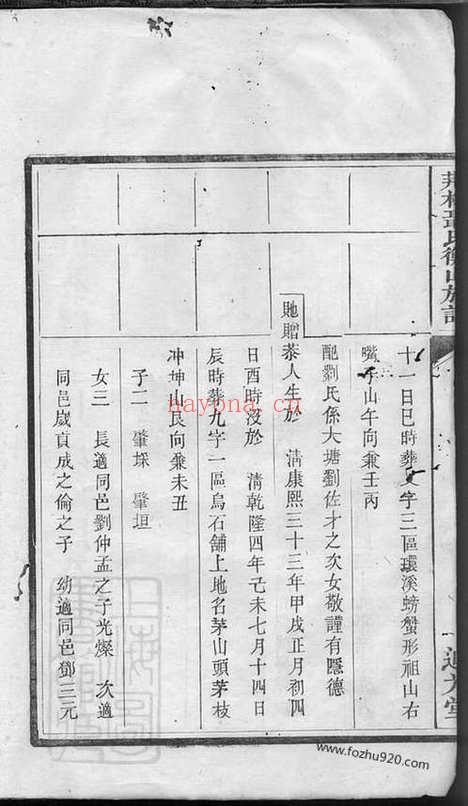 十一日巳時葬文字三區環溪螃蟹形祖山右
嘴子山午向兼壬丙
配劉氏係大塘劉佐才之次女敬謹有隱德
貤贈恭人生於 清康熙三十三年甲戌正月初四
日酉時沒於 清乾隆四年己未七月十四日
辰時葬九字一區烏石舖上地名茅山頭茅枝
冲坤山艮向兼未丑
子二 肇埰 肇垣
女三 長適同邑劉仲孟之子光燦 次適
同邑歲貢成之倫之子 幼適同邑鄧三元
nayona.cn
www.fozhu920.com